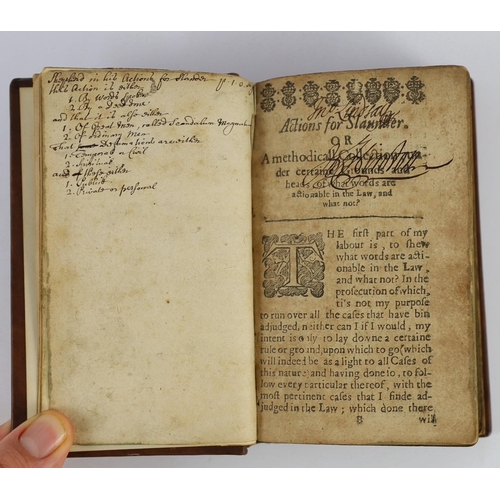 Shepherd in his Actions for Slander
this Action is either
1. By Words spoken
2. By a deed done
and that it is also either
1. Of Great Men, called Scandalum Magnatum
2. Of Ordinary Men
That Defamations are either
1. Temporal or Civil
2. Spiritual
and these either
1. Publick
2. Private or personal
Actions for Slaunder.
OR
A methodical Collection, un-
der certaine Grounds and
heads, of what words are
actionable in the Law, and
what not?
THE first part of my
labour is, to shew
what words are acti-
onable in the Law,
and what not? In the
prosecution of which,
ti's not my purpose
to run over all the cases that have bin
adjudged, neither can I if I would, my
intent is only to lay downe a certaine
rule or ground, upon which to go (which
will indeed be as a light to all Cases of
this nature) and having done so, to fol-
low every particular thereof, with the
most pertinent cases that I finde ad-
judged in the Law; which done there
B will